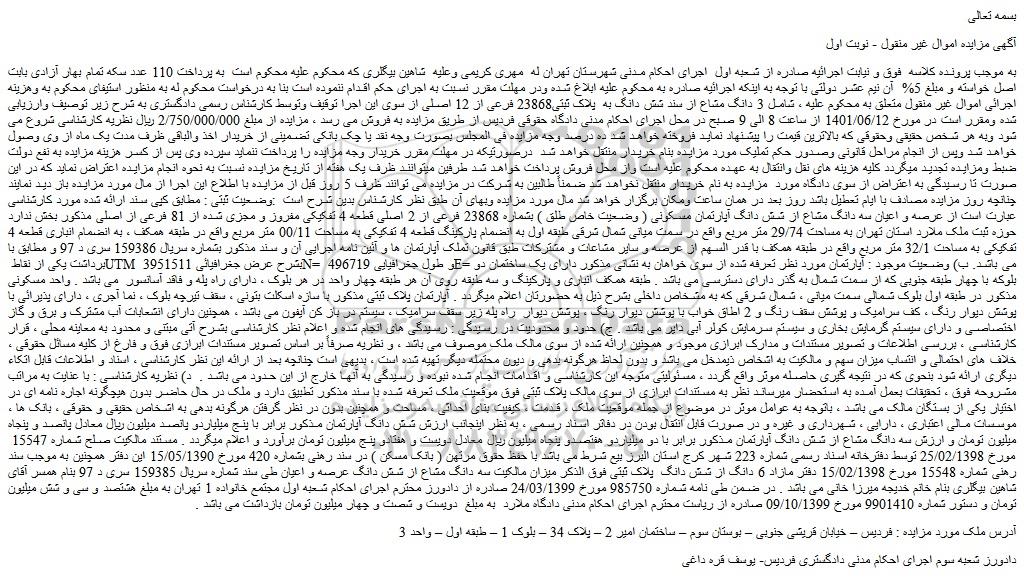 بسمه تعالی
آگهی مزایده اموال غیر منقول - نوبت اول
به موجب پرونده کلاسه فوق و نیابت اجرائیه صادره از شعبه اول اجرای احکام مدنی شهرستان تهران له مهری کریمی وعلیه شاهین بیگلری که محکوم علیه محکوم است به پرداخت 110 عدد سکه تمام بهار آزادی بابت
اصل خواسته و مبلغ 5% آن نیم عشر دولتی با توجه به اینکه اجرائیه صادره به محکوم علیه ابلاغ شده ودر مهلت مقرر نسبت به اجرای حکم اقدام ننموده است بنا به درخواست محکوم له به منظور استیفای محکوم به وهزینه
اجرائی اموال غیر منقول متعلق به محکوم علیه ، شامل 3 دانگ مشاع از سند شش دانگ به پلاک ثبتی23868 فرعی از 12 اصلی از سوی این اجرا توقیف وتوسط کارشناس رسمی دادگستری به شرح زیر توصیف وارزیابی
شده ومقرر است در مورخ 1401/06/12 از ساعت 8 الی 9 صبح در محل اجرای احکام مدنی دادگاه حقوقی فردیس از طریق مزایده به فروش می رسد ، مزایده از مبلغ 2/750/000/000 ریال نظریه کارشناسی شروع می
شود وبه هر شخص حقیقی وحقوقی که بالاترین قیمت را پیشنهاد نماید فروخته خواهد شد ده درصد وجه مزایده فی المجلس بصورت وجه نقد یا چک بانکی تضمینی از خریدار اخذ والباقی ظرف مدت یک ماه از وی وصول
خواهد شد وپس از انجام مراحل قانونی وصدور حکم تملیک مورد مزایده بنام خریدار منتقل خواهد شد درصورتیکه در مهلت مقرر خریدار وجه مزایده را پرداخت ننماید سپرده وی پس از کسر هزینه مزایده به نفع دولت
ضبط ومزایده تجدید میگردد کلیه هزینه های نقل وانتقال به عهده محکوم علیه است واز محل فروش پرداخت خواهد شد طرفین میتوانند ظرف یک هفته از تاریخ مزایده نسبت به نحوه انجام مزایده اعتراض نماید که در این
صورت تا رسیدگی به اعتراض از سوی دادگاه مورد مزایده به نام خریدار منتقل نخواهد شد ضمناً طالبین به شرکت در مزایده می توانند ظرف 5 روز قبل از مزایده با اطلاع این اجرا از مال مورد مزایده باز دید نمایند
چنانچه روز مزایده مصادف با ایام تعطیل باشد روز بعد در همان ساعت ومکان برگزار خواهد شد مال مورد مزایده وبهای آن طبق نظر کارشناس بدین شرح است :وضعیت ثبتی : مطابق کپی سند ارائه شده مورد کارشناسی
عبارت است از عرصه و اعیان سه دانگ مشاع از شش دانگ آپارتمان مسکونی ( وضعیت خاص طلق ) بشماره 23868 فرعی از 2 اصلی قطعه 4 تفکیکی مفروز و مجزی شده از 81 فرعی از اصلی مذکور بخش ندارد
حوزه ثبت ملک ملارد استان تهران به مساحت 29/74 متر مربع واقع در سمت میانی شمال شرقی طبقه اول به انضمام پارکینگ قطعه 4 تفکیکی به مساحت 00/11 متر مربع واقع در طبقه همکف ، به انضمام انباری قطعه 4
تفکیکی به مساحت 32/1 متر مربع واقع در طبقه همکف با قدر السهم از عرصه و سایر مشاعات و مشترکات طبق قانون تملک آپارتمان ها و آئین نامه اجرایی آن و سند مذکور بشماره سریال 159386 سری د 97 و مطابق با
می باشد. ب) وضعیت موجود : آپارتمان مورد نظر تعرفه شده از سوی خواهان به نشانی مذکور دارای یک ساختمان دو =Eو طول جغرافیایی 496719 =Nبشرح عرض جغرافیائی 3951511 UTMبرداشت یکی از نقاط
بلوکه با چهار طبقه جنوبی که از سمت شمال به گذر دارای دسترسی می باشد . طبقه همکف انباری و پارکینگ و سه طبقه روی آن هر طبقه چهار واحد در هر بلوک ، دارای راه پله و فاقد آسانسور می باشد . واحد مسکونی
مذکور در طبقه اول بلوک شمالی سمت میانی ، شمال شرقی که به مشخصات داخلی بشرح ذیل به حضورتان اعلام میگردد . آپارتمان پلاک ثبتی مذکور با سازه اسکلت بتونی ، سقف تیرچه بلوک ، نما آجری ، دارای پذیرائی با
پوشش دیوار رنگ ، کف سرامیک و پوشش سقف رنگ و 2 اطاق خواب با پوشش دیوار رنگ ، پوشش دیوار راه پله زیر سقف سرامیک ، سیستم در باز کن آیفون می باشد ، همچنین دارای انشعابات آب مشترک و برق و گاز
اختصاصی و دارای سیستم گرمایش بخاری و سیستم سرمایش کولر آبی دایر می باشد . ج) حدود و محدودیت در رسیدگی : رسیدگی های انجام شده و اعلام نظر کارشناسی بشرح آتی مبتنی و محدود به معاینه محلی ، قرار
کارشناسی ، بررسی اطلاعات و تصویر مستندات و مدارک ابرازی موجود و همچنین ارائه شده از سوی مالک ملک موصوف می باشد ، و نظریه صرفاً بر اساس تصویر مستندات ابرازی فوق و فارغ از کلیه مسائل حقوقی ،
خلاف های احتمالی و انتساب میزان سهم و مالکیت به اشخاص ذیمدخل می باشد و بدون لحاظ هرگونه بدهی و دیون محتمله دیگر تهیه شده است ، بدیهی است چنانچه بعد از ارائه این نظر کارشناسی ، اسناد و اطلاعات قابل اتکاء
دیگری ارائه شود بنحوی که در نتیجه گیری حاصله موثر واقع گردد ، مسئولیتی متوجه این کارشناسی و اقدامات انجام شده نبوده و رسیدگی به آنها خارج از این حدود می باشد . د) نظریه کارشناسی : با عنایت به مراتب
مشروحه فوق ، تحقیقات بعمل آمده به استحضار میرساند نظر به مستندات ابرازی از سوی مالک پلاک ثبتی فوق موقعیت ملک تعرفه شده با سند مذکور تطبیق دارد و ملک در حال حاضر بدون هیچگونه اجاره نامه ای در
اختیار یکی از بستگان مالک می باشد ، باتوجه به عوامل موثر در موضوع از جمله موقعیت ملک ، قدمت ، کیفیت بنای احداثی ، مساحت و همچنین بدون در نظر گرفتن هرگونه بدهی به اشخاص حقیقی و حقوقی ، بانک ها ،
موسسات مالی اعتباری ، دارایی ، شهرداری و غیره و در صورت قابل انتقال بودن در دفاتر اسناد رسمی ، به نظر اینجانب ارزش شش دانگ آپارتمان مذکور برابر با پنج میلیاردو پانصد میلیون ریال معادل پانصد و پنجاه
میلیون تومان و ارزش سه دانگ مشاع از شش دانگ آپارتمان مذکور برابر با دو میلیاردو هفتصد و پنجاه میلیون ریال معادل دویست و هفتادو پنج میلیون تومان برآورد و اعلام میگردد . مستند مالکیت صلح شماره 15547
مورخ 25/02/1398 توسط دفترخانه اسناد رسمی شماره 223 شهر کرج استان البرز بیع شرط می باشد با حفظ حقوق مرتهن ( بانک مسکن ) در سند رهنی بشماره 420 مورخ 15/05/1390 این دفتر همچنین به موجب سند
رهنی شماره 15548 مورخ 15/02/1398 دفتر مازاد 6 دانگ از شش دانگ پلاک ثبتی فوق الذکر میزان مالکیت سه دانگ مشاع از شش دانگ عرصه و اعیان طی سند شماره سریال 159385 سری د 97 بنام همسر آقای
شاهین بیگلری بنام خانم خدیجه میرزا خانی می باشد . در ضمن طی نامه شماره 985750 مورخ 24/03/1399 صادره از دادورز محترم اجرای احکام شعبه اول مجتمع خانواده 1 تهران به مبلغ هشتصد و سی و شش میلیون
تومان و دستور شماره 9901410 مورخ 09/10/1399 صادره از ریاست محترم اجرای احکام مدنی دادگاه ملارد به مبلغ دویست و شصت و چهار میلیون تومان بازداشت می باشد .
آدرس ملک مورد مزایده : فردیس – خیابان قریشی جنوبی – بوستان سوم – ساختمان امیر 2 – پلاک 34 – بلوک 1 – طبقه اول – واحد 3
دادورز شعبه سوم اجرای احکام مدنی دادگستری فردیس- یوسف قره داغی